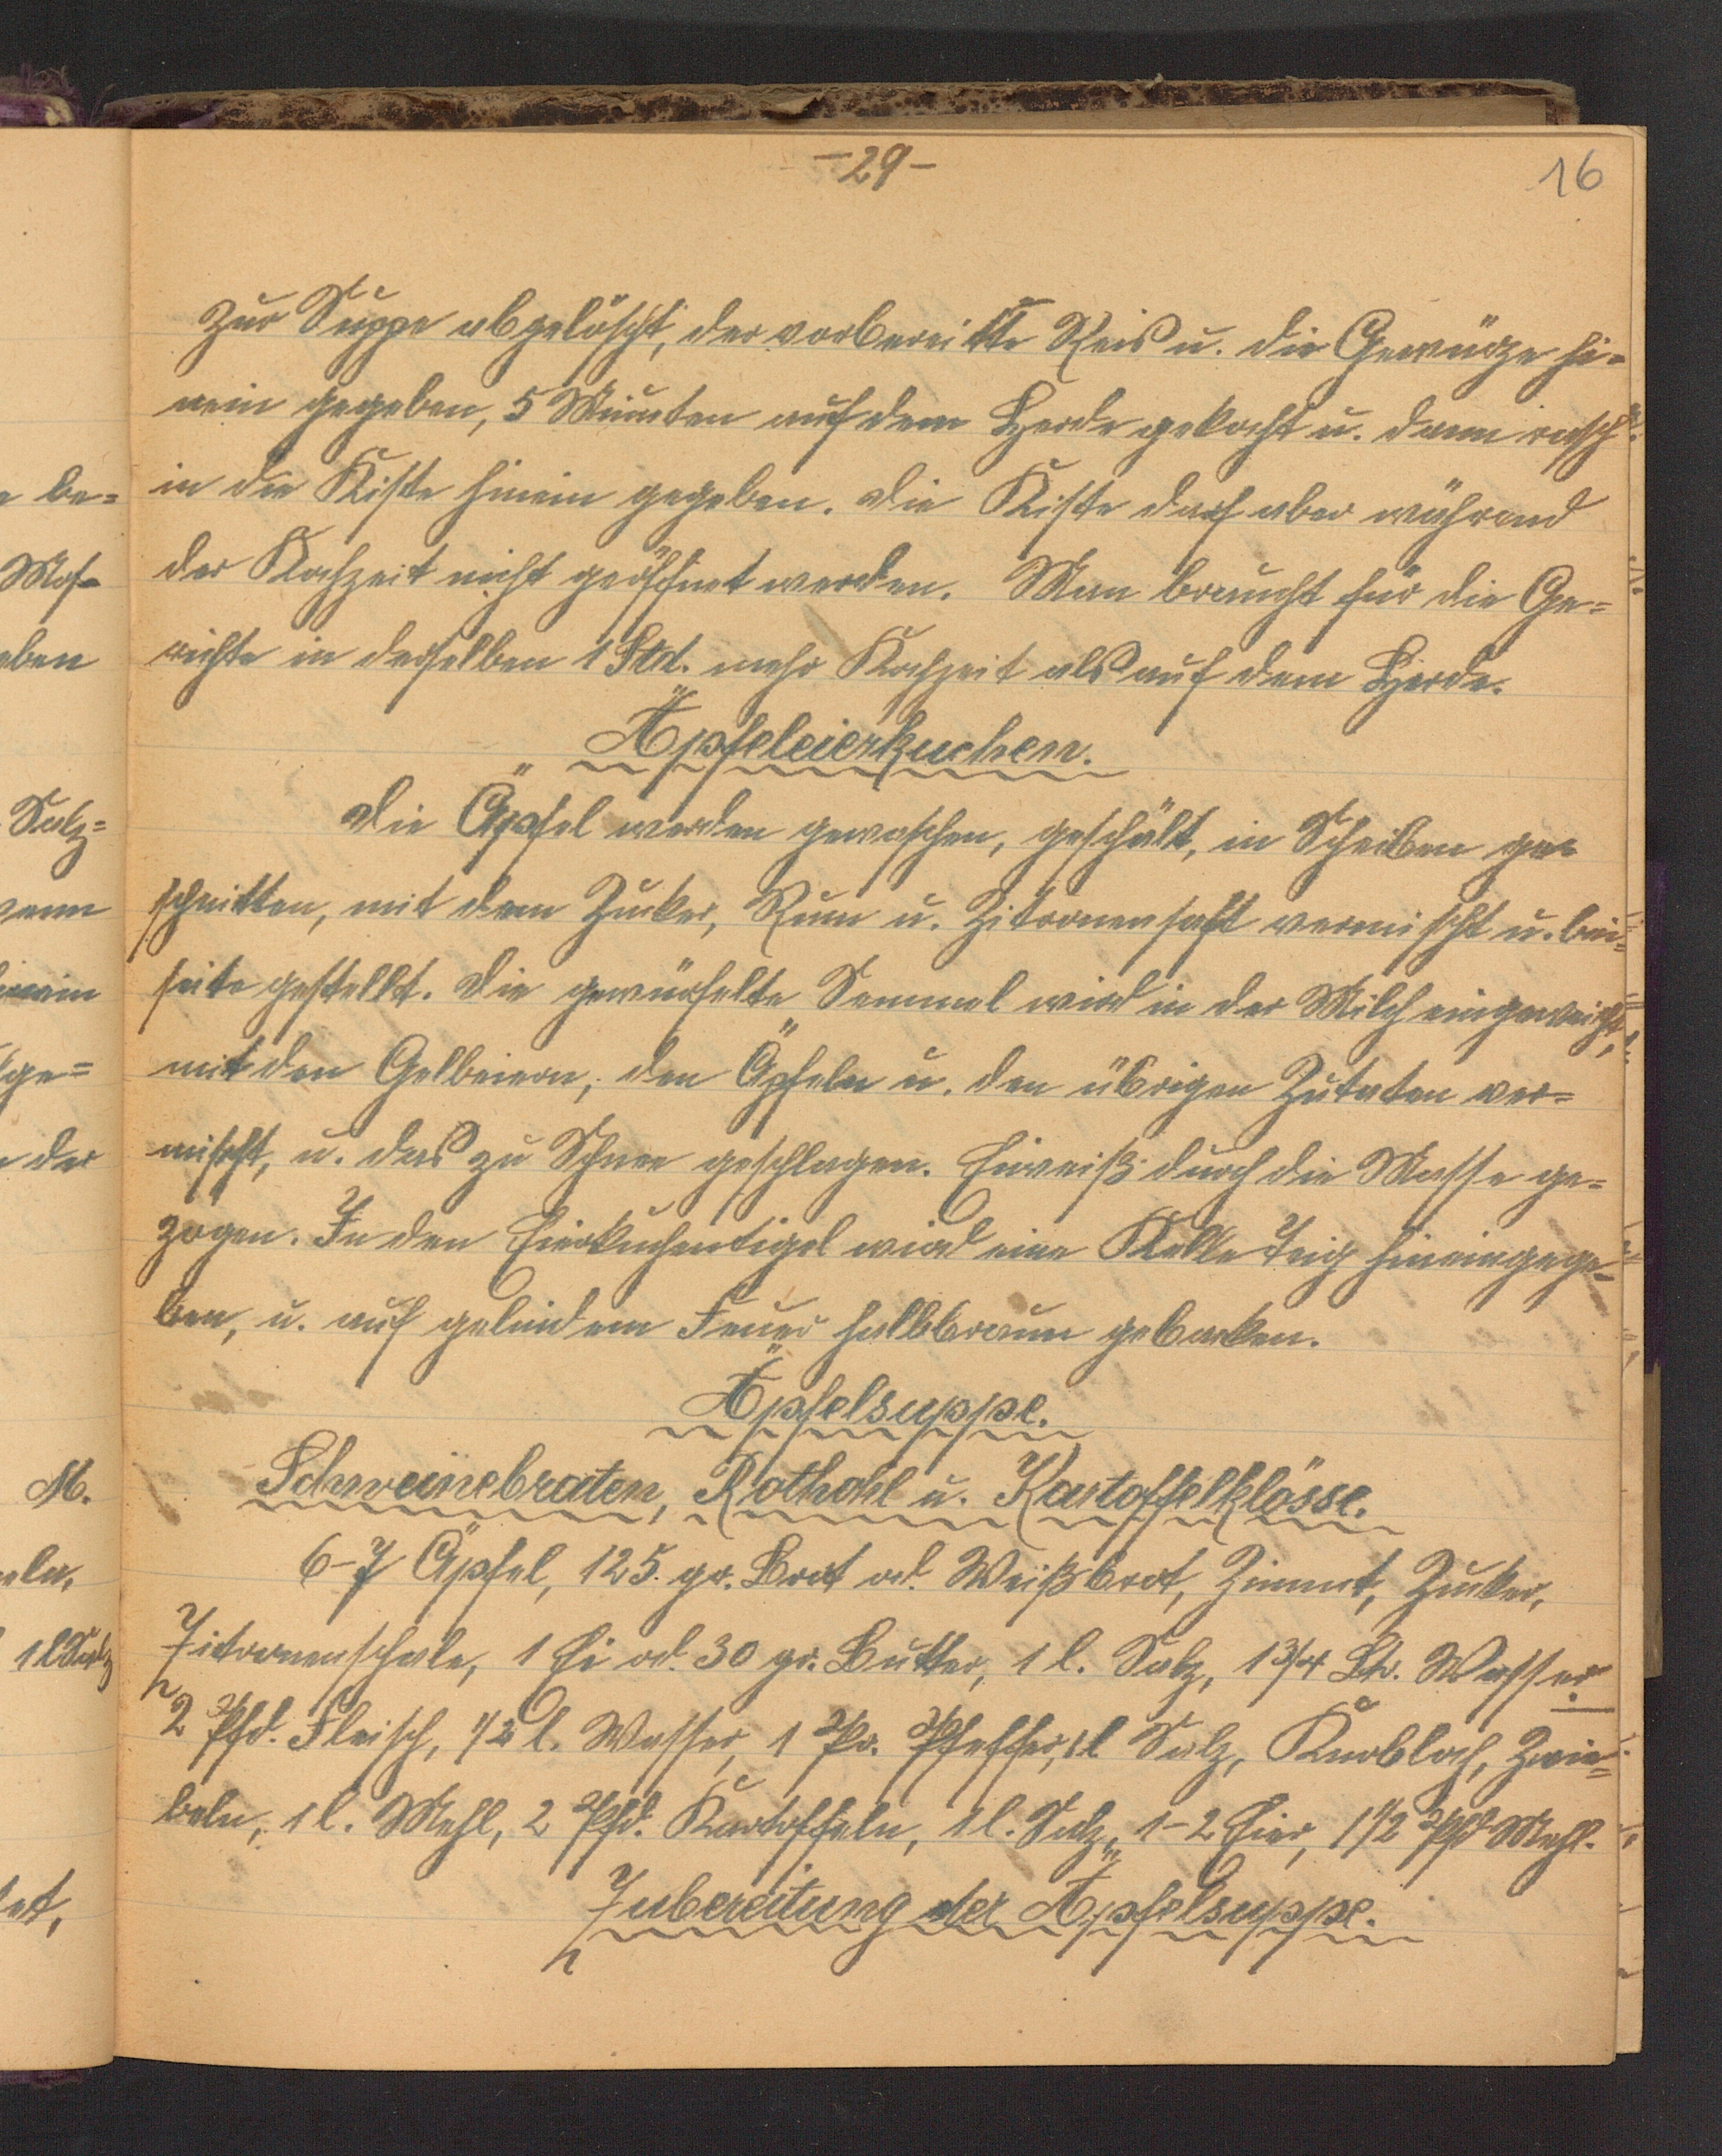 -29-
16
zur Suppe abgelöscht, der vorbereitete Reis u. die Gewürze hi=
nein gegeben, 5 Minuten auf dem Herde gekocht u. dann rasch
in die Kiste hinein gegeben. Die Kiste darf aber während
der Kochzeit nicht geöffnet werden. Man braucht für die Ge=
richte in derselben 1 Std. mehr Kochzeit als auf dem Herde.
Äpfeleierkuchen.
Die Äpfel werden gewaschen, geschält, in Scheiben ge=
schnitten, mit dem Zucker, Rum u. Zitronensaft vermischt u. bei=
seite gestellt. Die gewürfelte Semmel wird in der Milch eingeweicht,
mit den Gelbeiern, den Äpfeln u. den übrigen Zutaten ver=
mischt, u. das zu Schnee geschlagen. Eiweiß durch die Masse ge=
zogen. In den Eierkuchentigel wird eine Kelle Teig hineingege=
ben, u. auf gelindem Feuer hellbraun gebacken.
Äpfelsuppe.
Schweinebraten, Rothohl u. Kartoffelklösse.
6-7 Äpfel, 125. gr. Brot od. Weißbrot, Zimmt, Zucker,
Zitronenschale, 1 Ei od. 30 gr. Butter, 1 l. Salz, 1 3/4 Ltr. Wasser
2 Pfd. Fleisch, 1/2 l. Wasser, 1 Pr. Pfeffer, 1 l Salz, Knobloch, Zwie=
beln, 1 l. Mehl, 2 Pfd. Kartoffeln, 1 l. Salz, 1-2 Eier, 1 1/2 Pfd Mehl.
Zubereitung der Äpfelsuppe.
be=
eben
Salz=
ge=
der
M.
1 l Salz